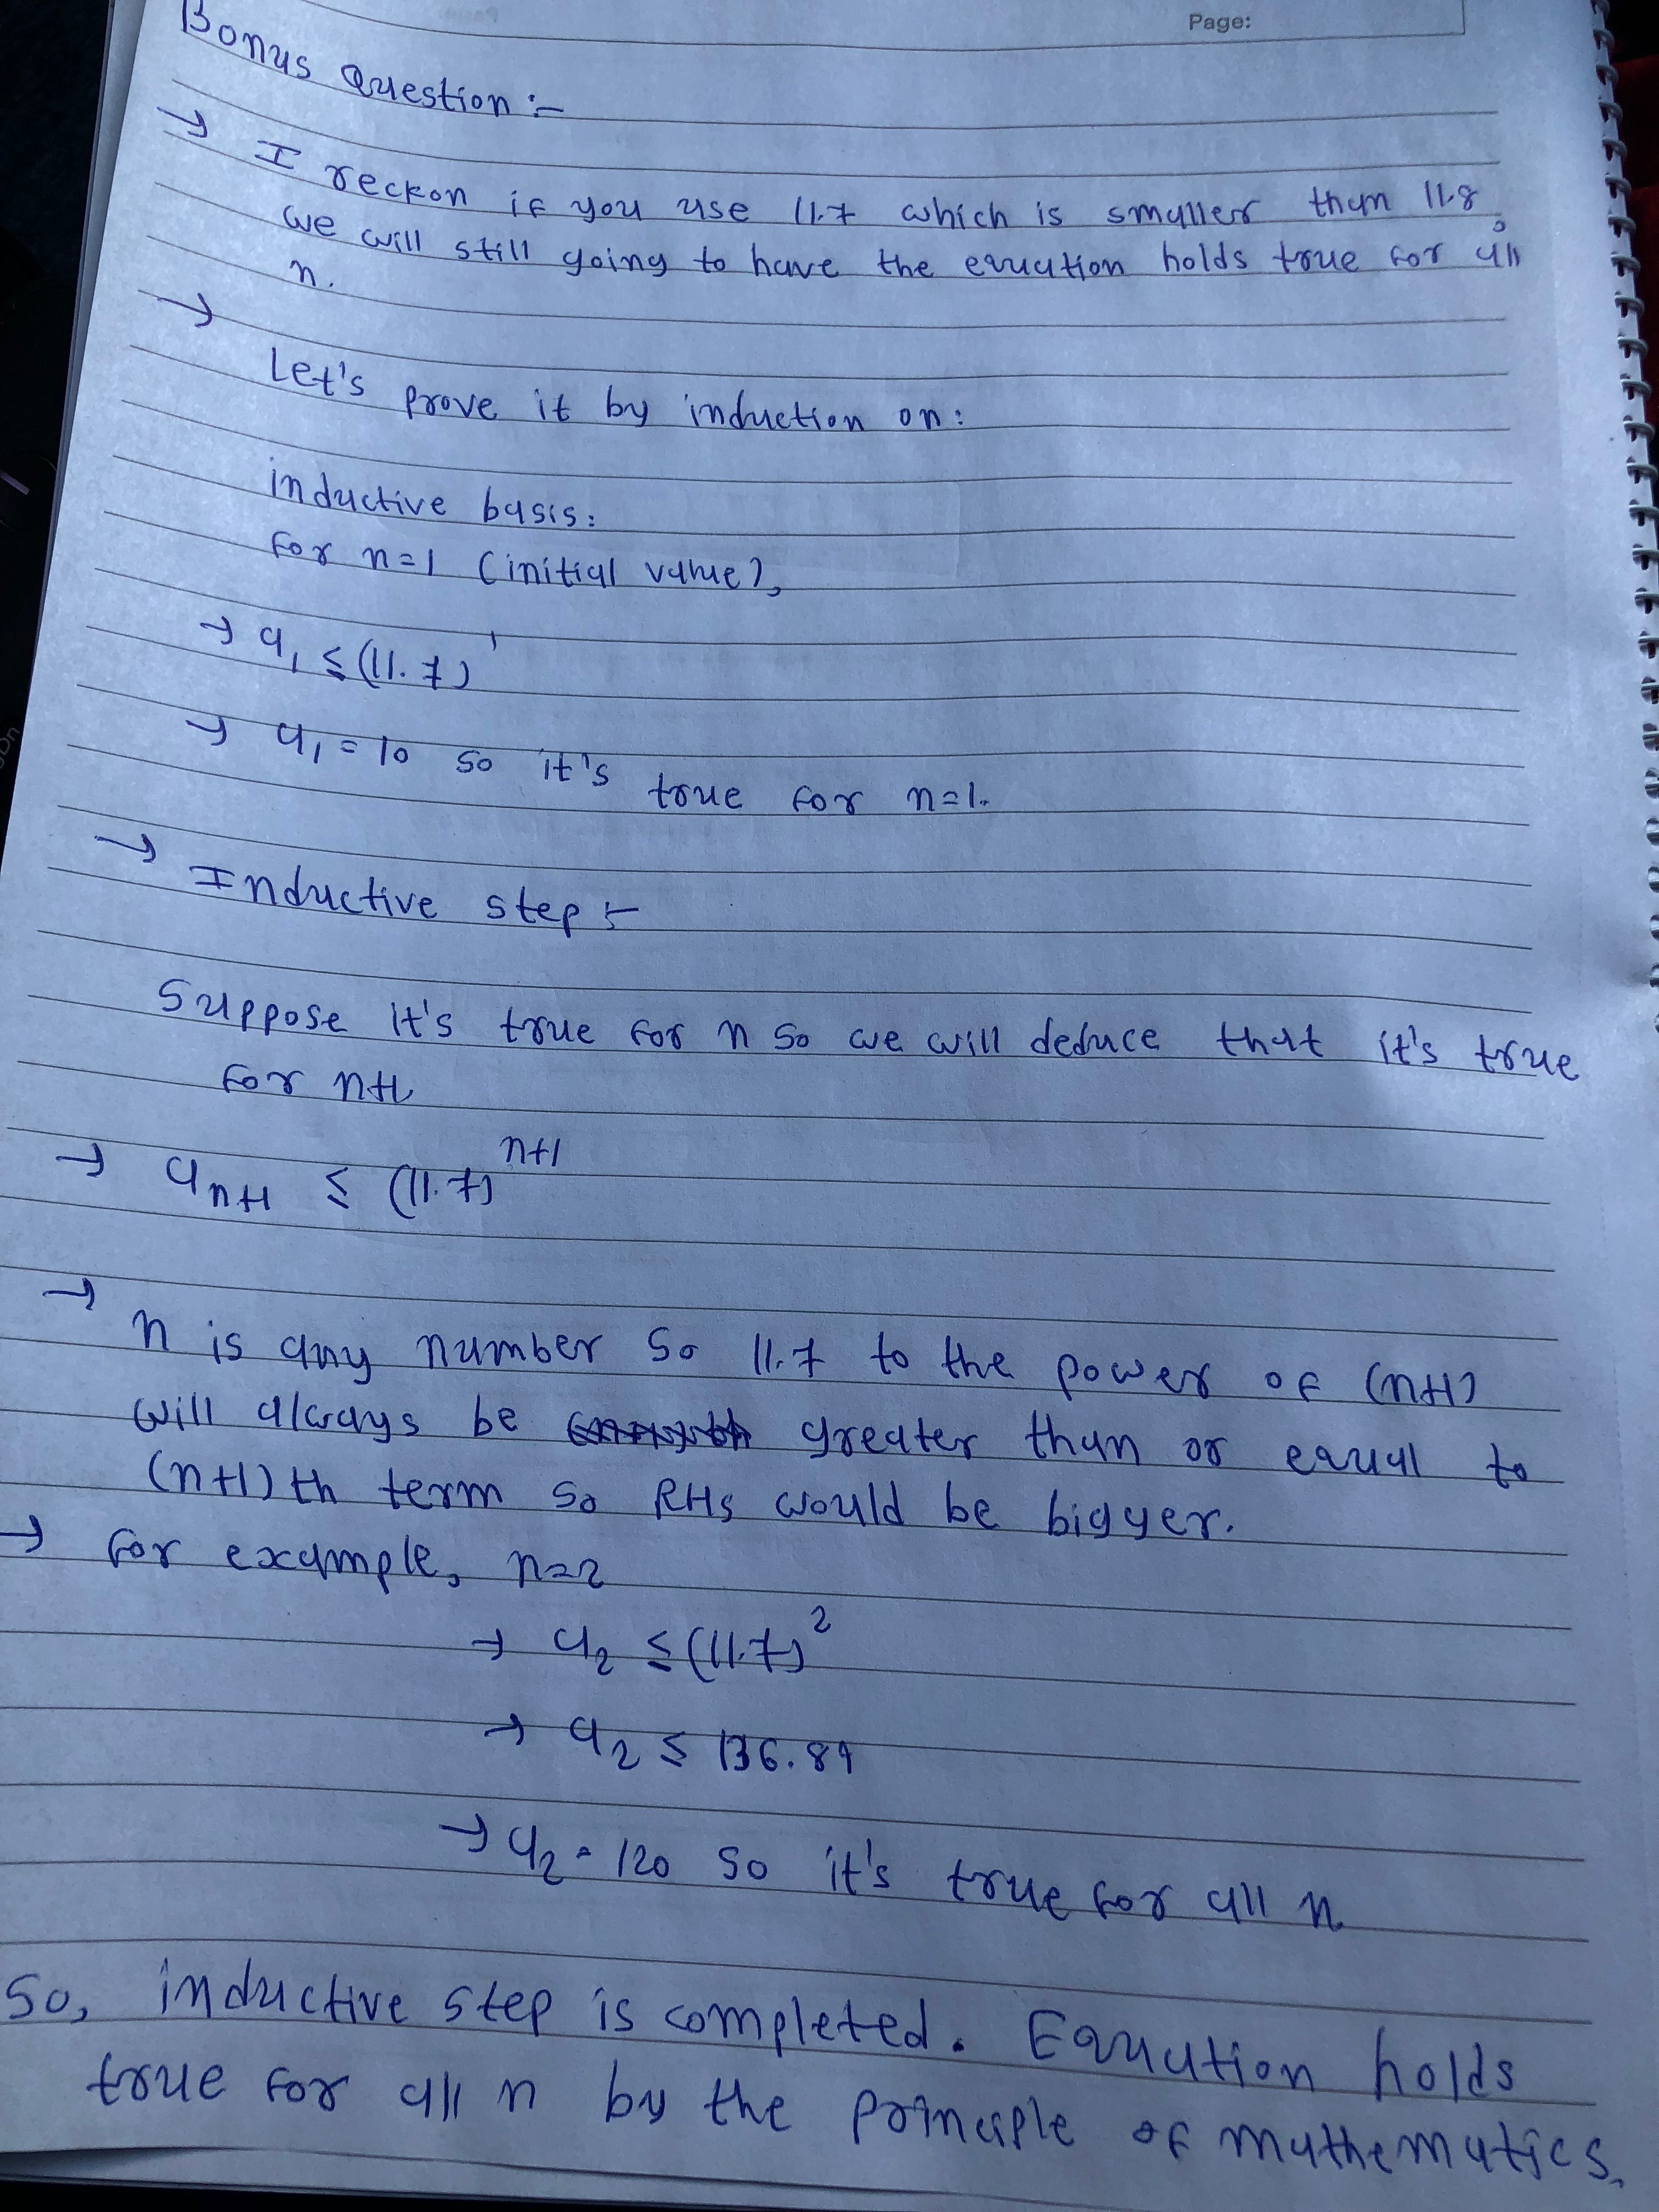 Page:
Bonus Question :-
→ I reckon if you use 11.7 which is smaller than 11.8,
we will still going to have the equation holds true for all
n.
→
Let's prove it by induction on:
inductive basis:
for n=1 (initial value),
→ a₁ ≤ (11.7)¹
→ a₁ = 10 so it's true for n=1.
→ Inductive step :-
Suppose it's true for n so we will deduce that it's true
for n+1
→ aₙ₊₁ ≤ (11.7)ⁿ⁺¹
→ n is any number so 11.7 to the power of (n+1)
will always be greater than or equal to
(n+1)th term so RHS would be bigger.
→ for example, n=2
→ a₂ ≤ (11.7)²
→ a₂ ≤ 136.89
→ a₂ = 120 so it's true for all n.
So, inductive step is completed. Equation holds
true for all n by the principle of mathematics.